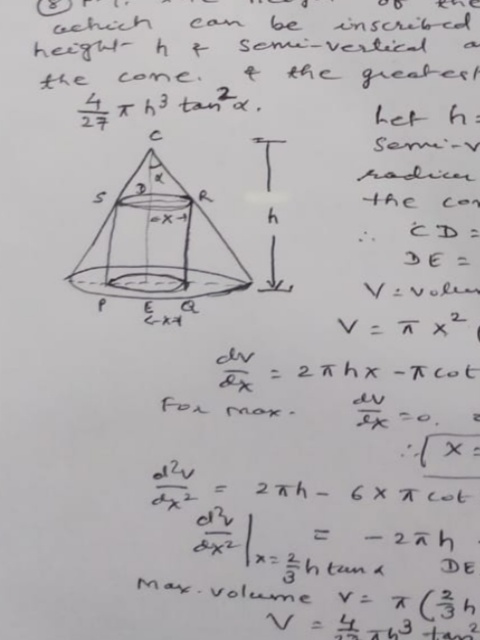 of the
which can be inscribed
height h & semi-vertical a
the cone. & the greatest
4/27 π h³ tan²α.
Let h =
Semi-v
radius
the con
∴ CD =
DE =
V = volum
V = π x² (
C
α
S D R
x
h
P E Q
x
dv/dx = 2πhx - π cot
For max. dv/dx = 0.
∴ x =
d²v/dx² = 2πh - 6xπ cot
d²v/dx² | x = 2/3 h tanα = -2πh
DE
Max. volume V = π (2/3 h
V = 4/27 πh³ tan²